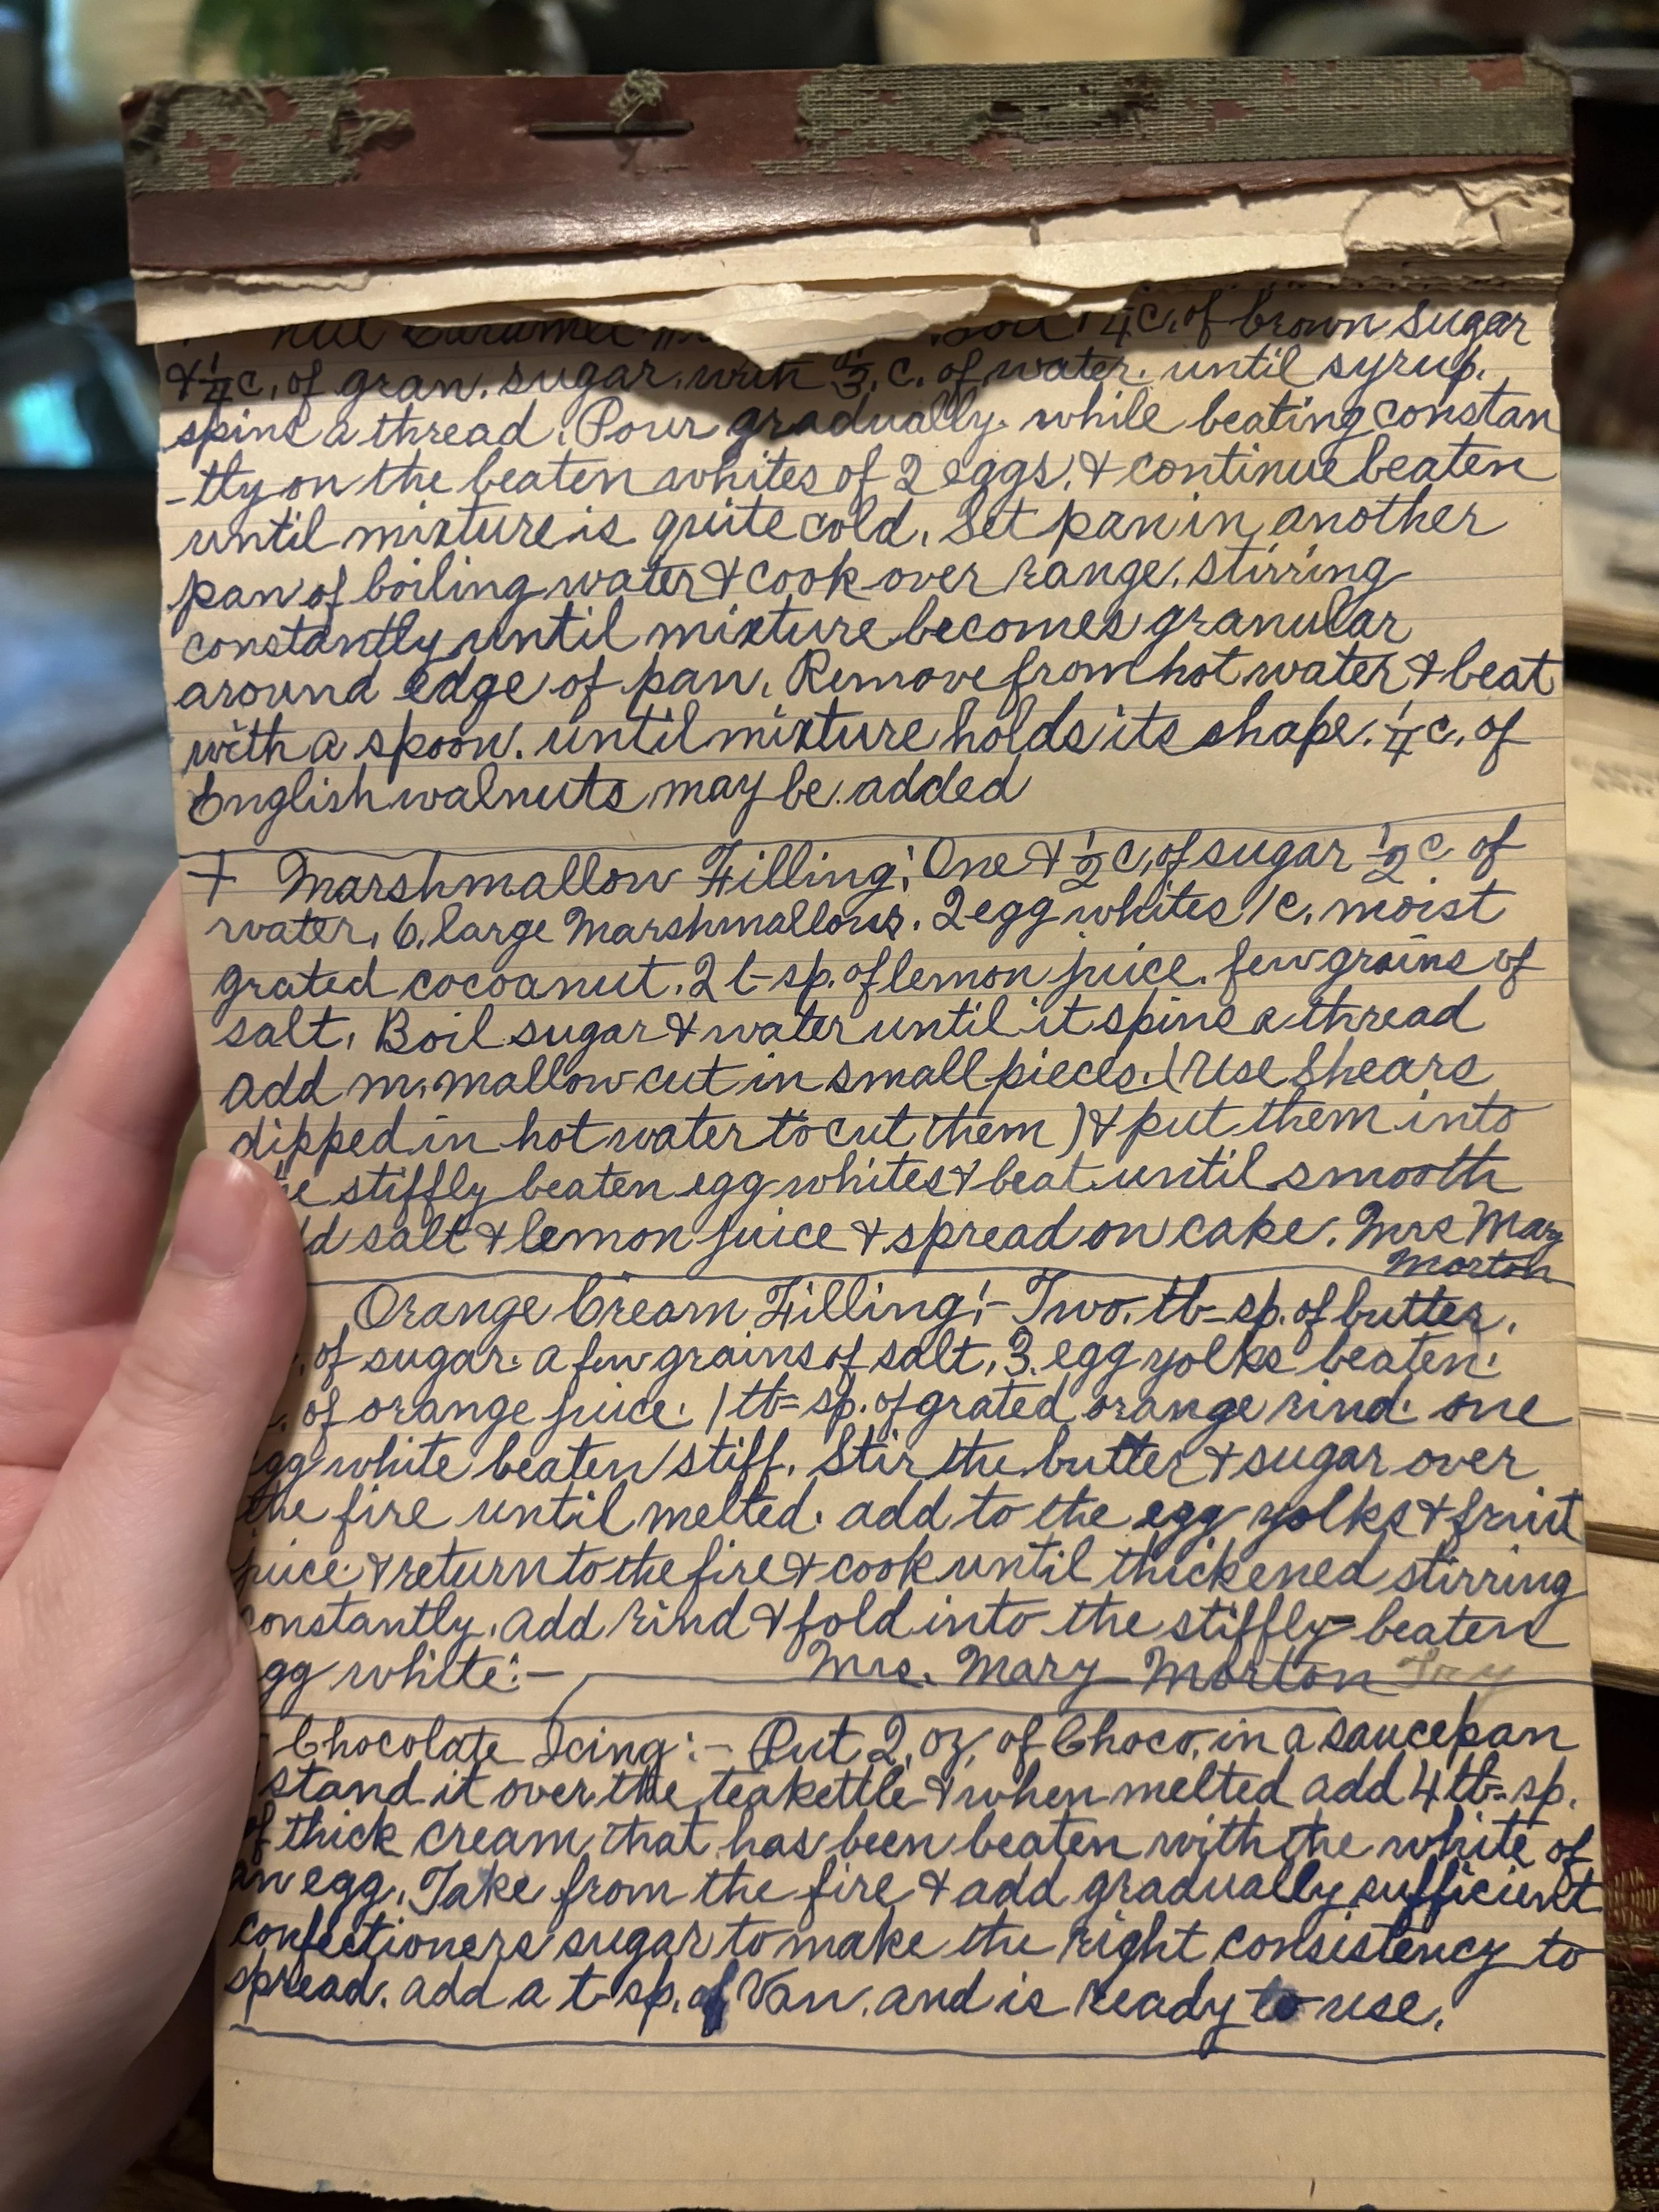 Nut Caramel Boil 1 1/4 c. of brown sugar
& 1/4 c. of gran. sugar. with 1/3. c. of water. until syrup.
spins a thread. Pour gradually. while beating constan
-tly on the beaten whites of 2 eggs. & continue beaten
until mixture is quite cold. Set pan in another
pan of boiling water & cook over range. stirring
constantly until mixture becomes granular
around edge of pan. Remove from hot water & beat
with a spoon. until mixture holds its shape. 1/4 c. of
English walnuts may be added
+ Marshmallow Filling: One & 1/2 c. of sugar 1/2 c of
water. 6. large Marshmallows. 2 egg whites 1 c. moist
grated cocoanut. 2 t-sp. of lemon juice. few grains of
salt. Boil sugar & water until it spins a thread
add m. mallow cut in small pieces. (Use Shears
dipped in hot water to cut them) & put them into
stiffly beaten egg whites & beat until smooth
salt & lemon juice & spread on cake. Mrs Mary
Morton
Orange Cream Filling:- Two. tb-sp. of butter.
of sugar. a few grains of salt. 3. egg yolks beaten.
of orange juice. 1 tb-sp. of grated orange rind. one
egg white beaten stiff. Stir the butter & sugar over
the fire until melted. add to the egg yolks & fruit
juice & return to the fire & cook until thickened stirring
constantly. add rind & fold into the stiffly-beaten
egg white:- Mrs. Mary Morton Try
Chocolate Icing:- Put 2. oz. of Choco. in a saucepan
stand it over the teakettle & when melted add 4 tb-sp.
of thick cream that has been beaten with the white of
an egg. Take from the fire & add gradually sufficient
confectioners sugar to make the right consistency to
spread. add a t-sp. of Van. and is ready to use.